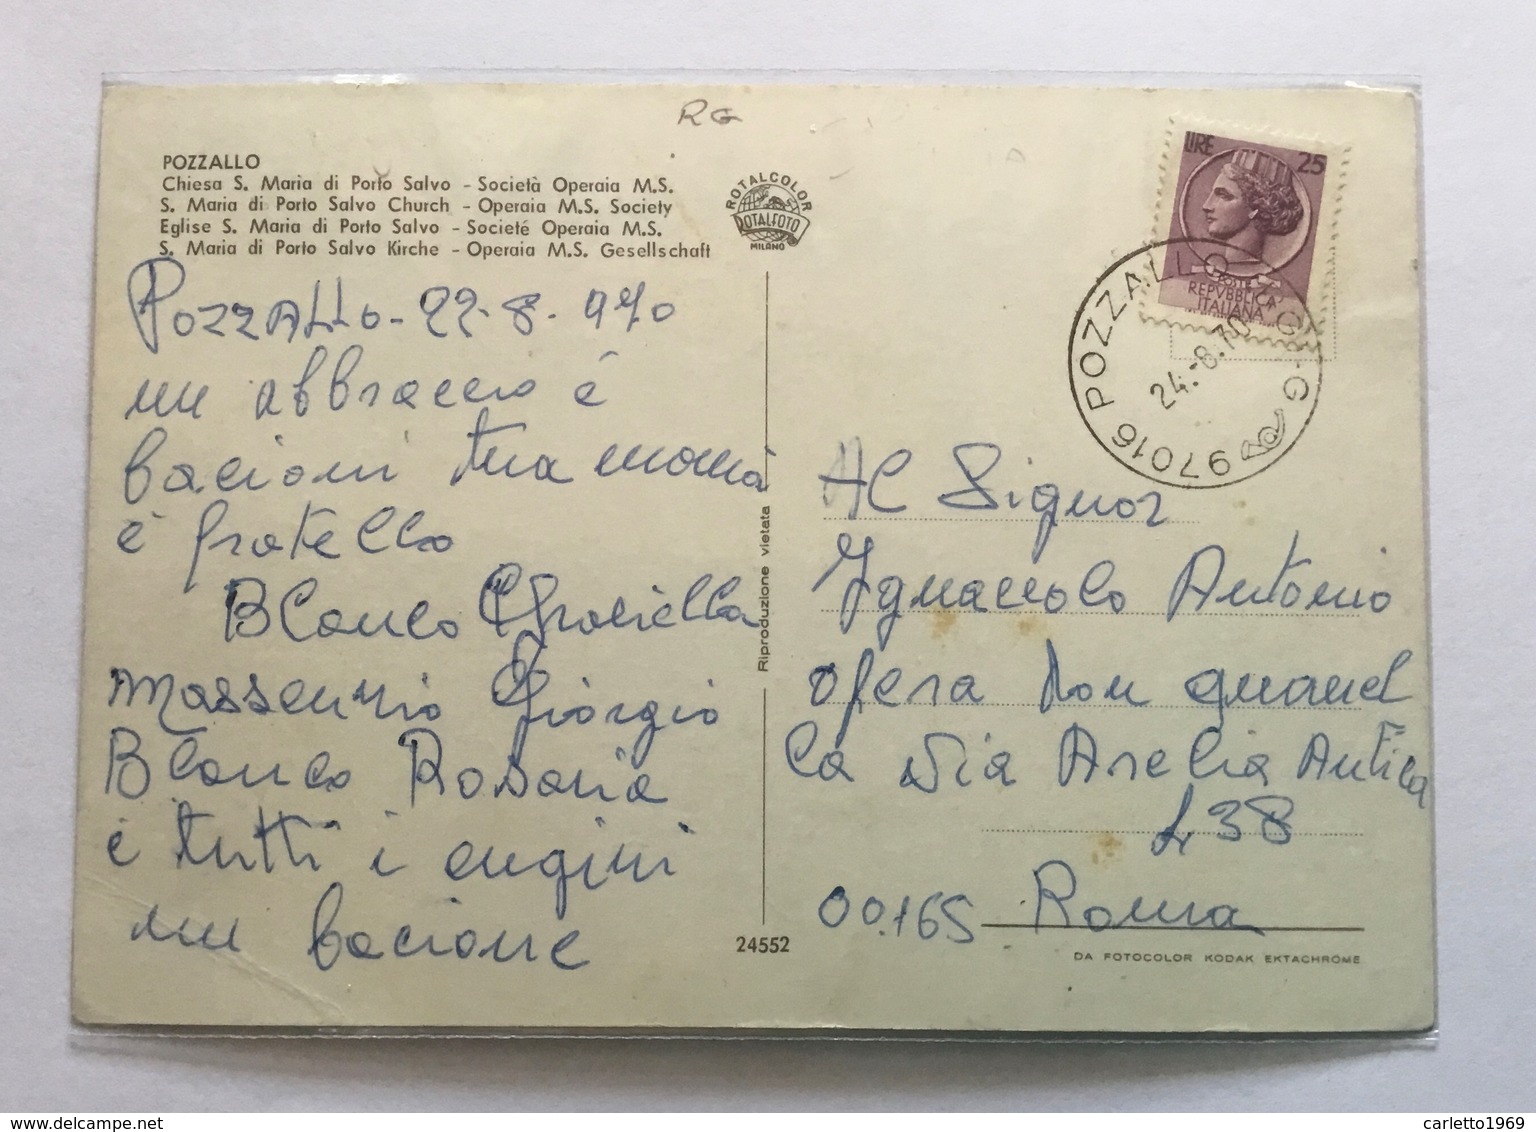 RG
POZZALLO
Chiesa S. Maria di Porto Salvo - Società Operaia M.S.
S. Maria di Porto Salvo Church - Operaia M.S. Society
Eglise S. Maria di Porto Salvo - Societé Operaia M.S.
S. Maria di Porto Salvo Kirche - Operaia M.S. Gesellschaft
ROTALCOLOR
ROTALFOTO
MILANO
LIRE 25
POSTE
REPVBBLICA
ITALIANA
97016 POZZALLO RG
24.-8.70
Pozzallo - 22-8.970
un abbraccio é
bacioni tua mamá
é fratello
Blanco Graziella
Massennio Giorgio
Blanco Rosaria
é tutti i cugini
un bacione
Riproduzione vietata
24552
Al Signor
Ignaccolo Antonio
Opera Don guanel
la Via Arelia Antica
438
00.165 Roma
DA FOTOCOLOR KODAK EKTACHROME
carletto1969